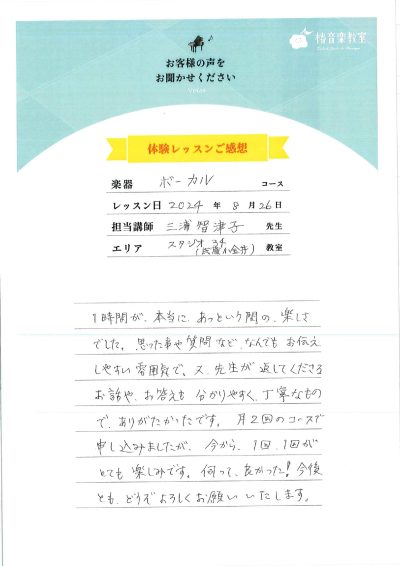 椿音楽教室
お客様の声を
お聞かせください
Voice
体験レッスンご感想
楽器 ボーカル コース
レッスン日 2024 年 8 月 26 日
担当講師 三浦 智津子 先生
エリア スタジオ 34 (武蔵小金井) 教室
1時間が、本当に、あっという間の、楽しさ
でした。思った事や質問など、なんでもお伝え
しやすい雰囲気で、又、先生が返してくださる
お話や、お答えも分かりやすく、丁寧なもの
で、ありがたかったです。月2回のコースで
申し込みましたが、今から、1回、1回が
とても楽しみです。伺って、良かった!今後
とも、どうぞよろしくお願いいたします。